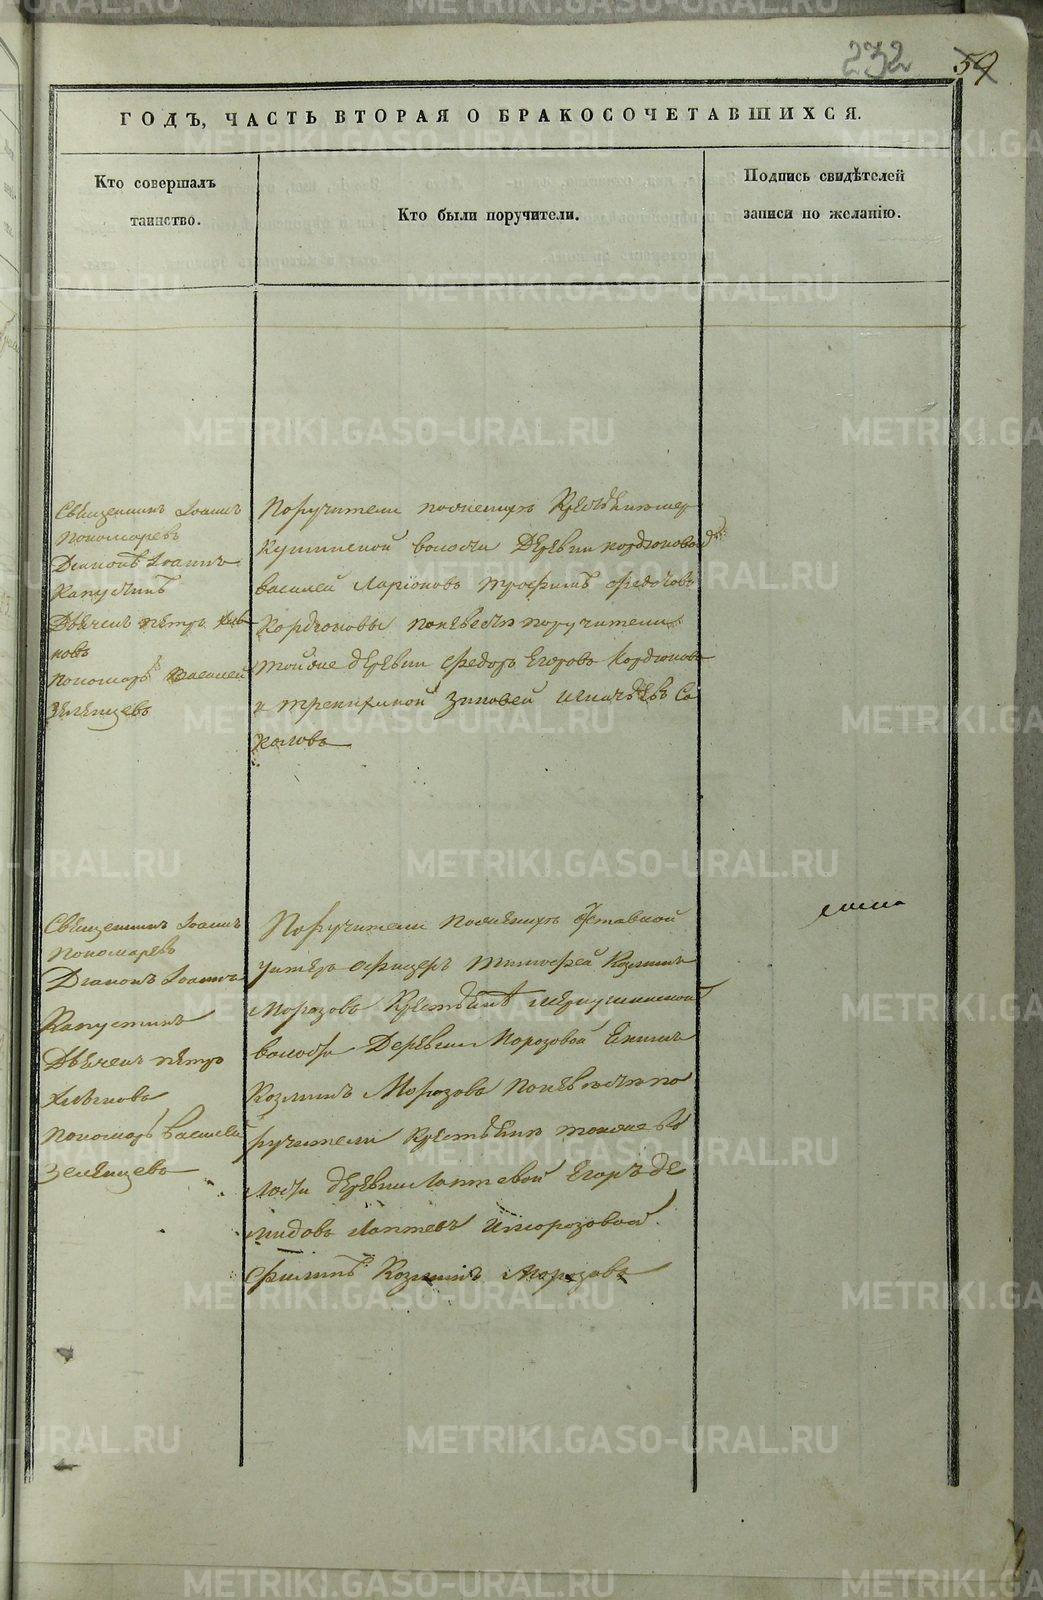 232 59
ГОДЪ, ЧАСТЬ ВТОРАЯ О БРАКОСОЧЕТАВШИХСЯ.
Кто совершалъ
таинство.
Кто были поручители.
Подпись свидѣтелей
записи по желанію.
Свещенникъ Иоаннъ
Пономаревъ
Диаконъ Иоаннъ
Капустинъ
Дьячекъ Петръ
Пономарь Василей
Зеленцевъ
Поручители по женихѣ
волости деревни Кордюковой
Василей Ларіоновъ Трофимъ Федотовъ
Кордюковы по невесте поручители
той же деревни Федоръ Егоровъ Кордюковъ
и Зиновей Игнатьевъ Со
коловъ
Свещенникъ Иоаннъ
Пономаревъ
Диаконъ Иоаннъ
Капустинъ
Дьячекъ Петръ
Пономарь Василей
Зеленцевъ
Поручители по женихѣ отставной
унтеръ офицеръ Тимофей Козминъ
Морозовъ
волости Деревни Морозовой
Козминъ Морозовъ по невесте по
ручители тоя же во
лости деревни Лаптевой Егоръ Де
мидовъ Лаптевъ и Морозовой
Филипъ Козминъ Морозовъ
METRIKI.GASO-URAL.RU